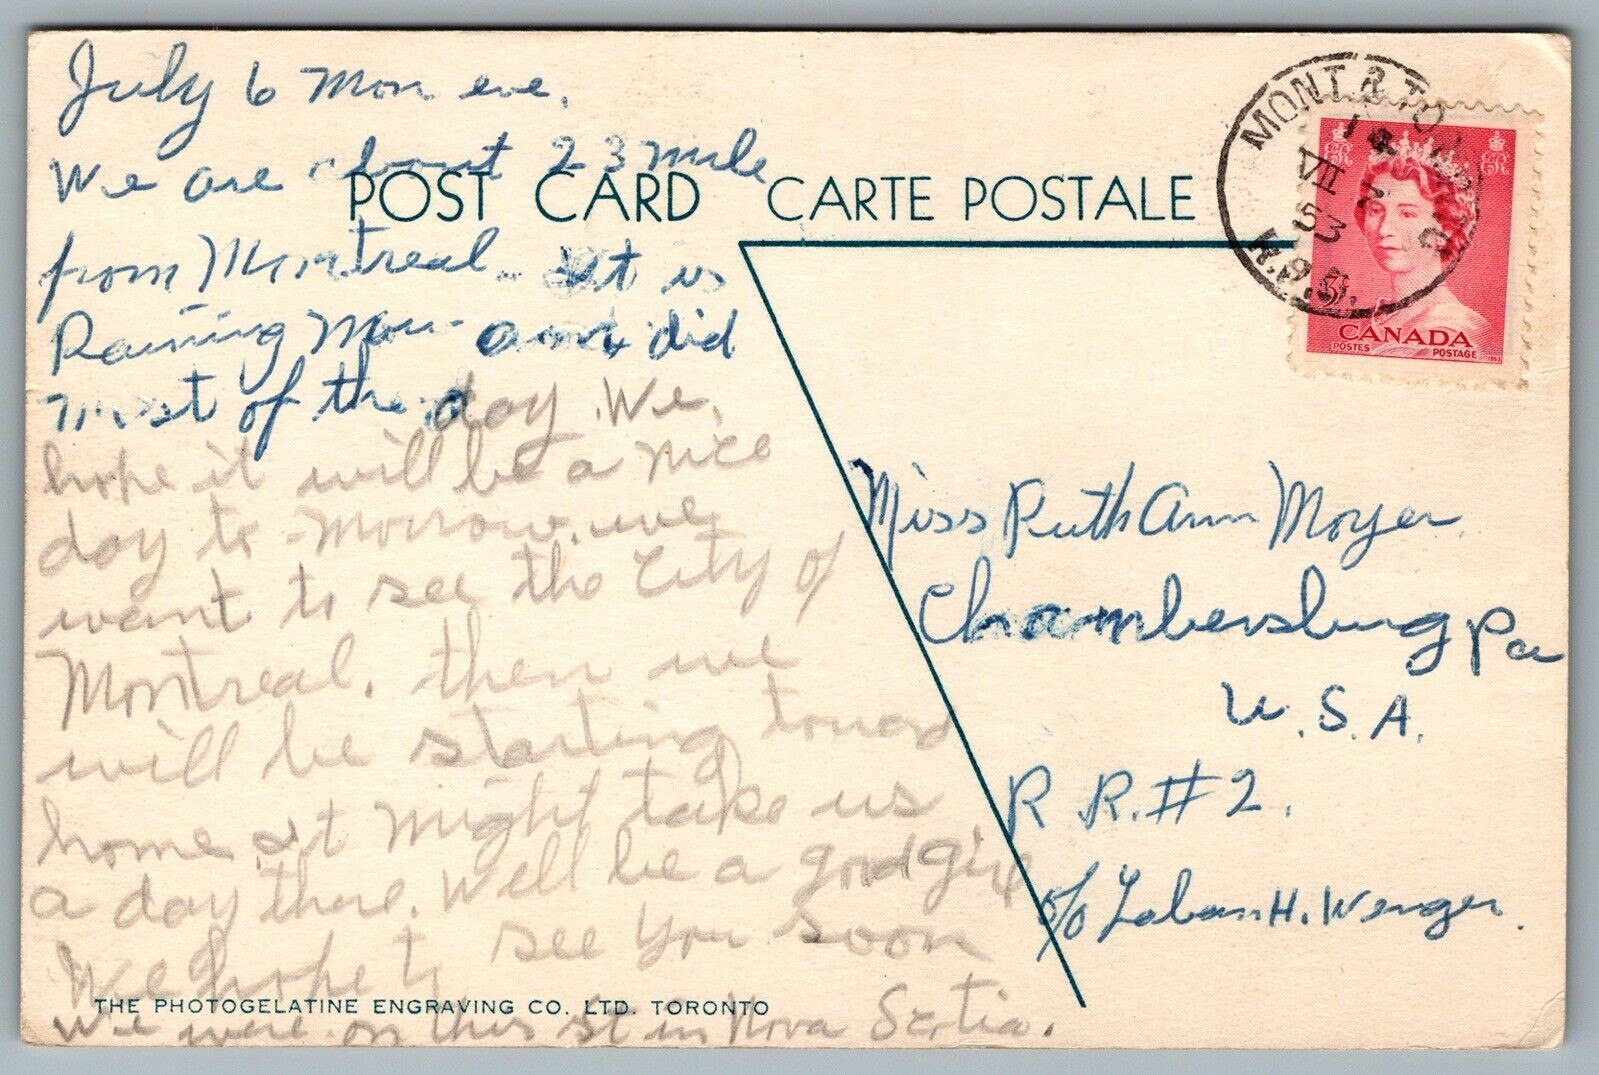 July 6 Mon eve.
We are about 23 mile
POST CARD CARTE POSTALE
from Montreal. It is
Raining Mon and did
most of the day. We
hope it will be a nice
day to-morrow. we
want to see the City of
Montreal. then we
will be starting toward
home. it might take us
a day there. Well be a good girl
We hope to see you soon
THE PHOTOGELATINE ENGRAVING CO. LTD. TORONTO
We were on this st in Nova Scotia.
Miss Ruth Ann Moyer.
Chambersburg Pa
U.S.A.
R R. #2.
c/o Laban H. Wenger.
MONT. & TOR.
VII
53
R.P.O.
3
CANADA
POSTES POSTAGE
1953